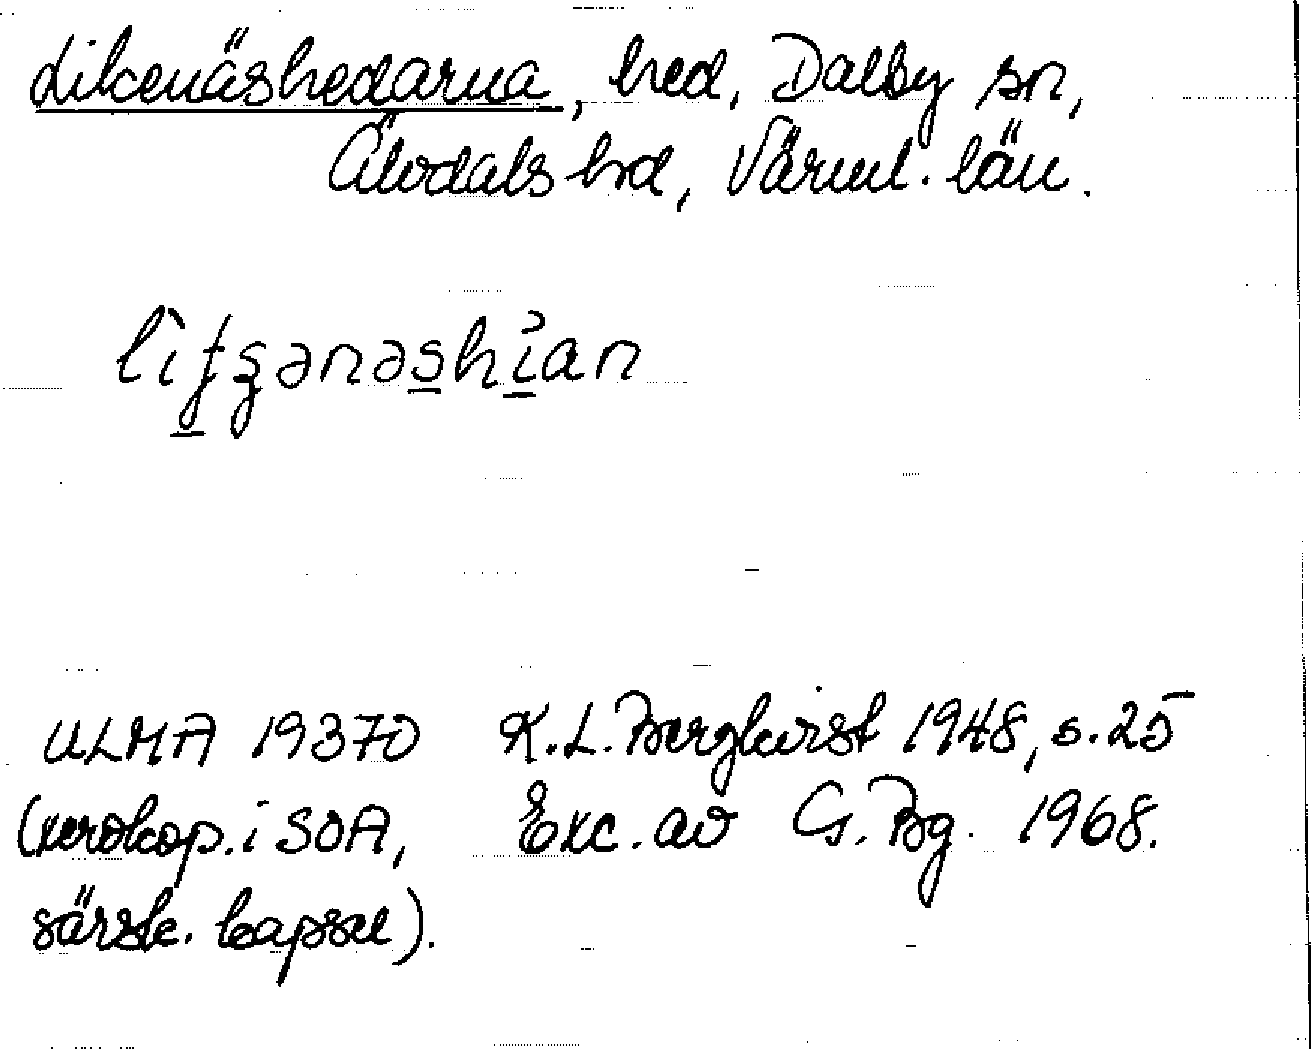 Likenäshedarna, hed, Dalby sn,
Älvdals hd, Värml. län.
lìfʂənəshi̠an
ULMA 19370 K.L. Bergkvist 1948, s. 25
(xerokop. i SOA, Exc. av G. Bg. 1968.
särsk. kapsel).